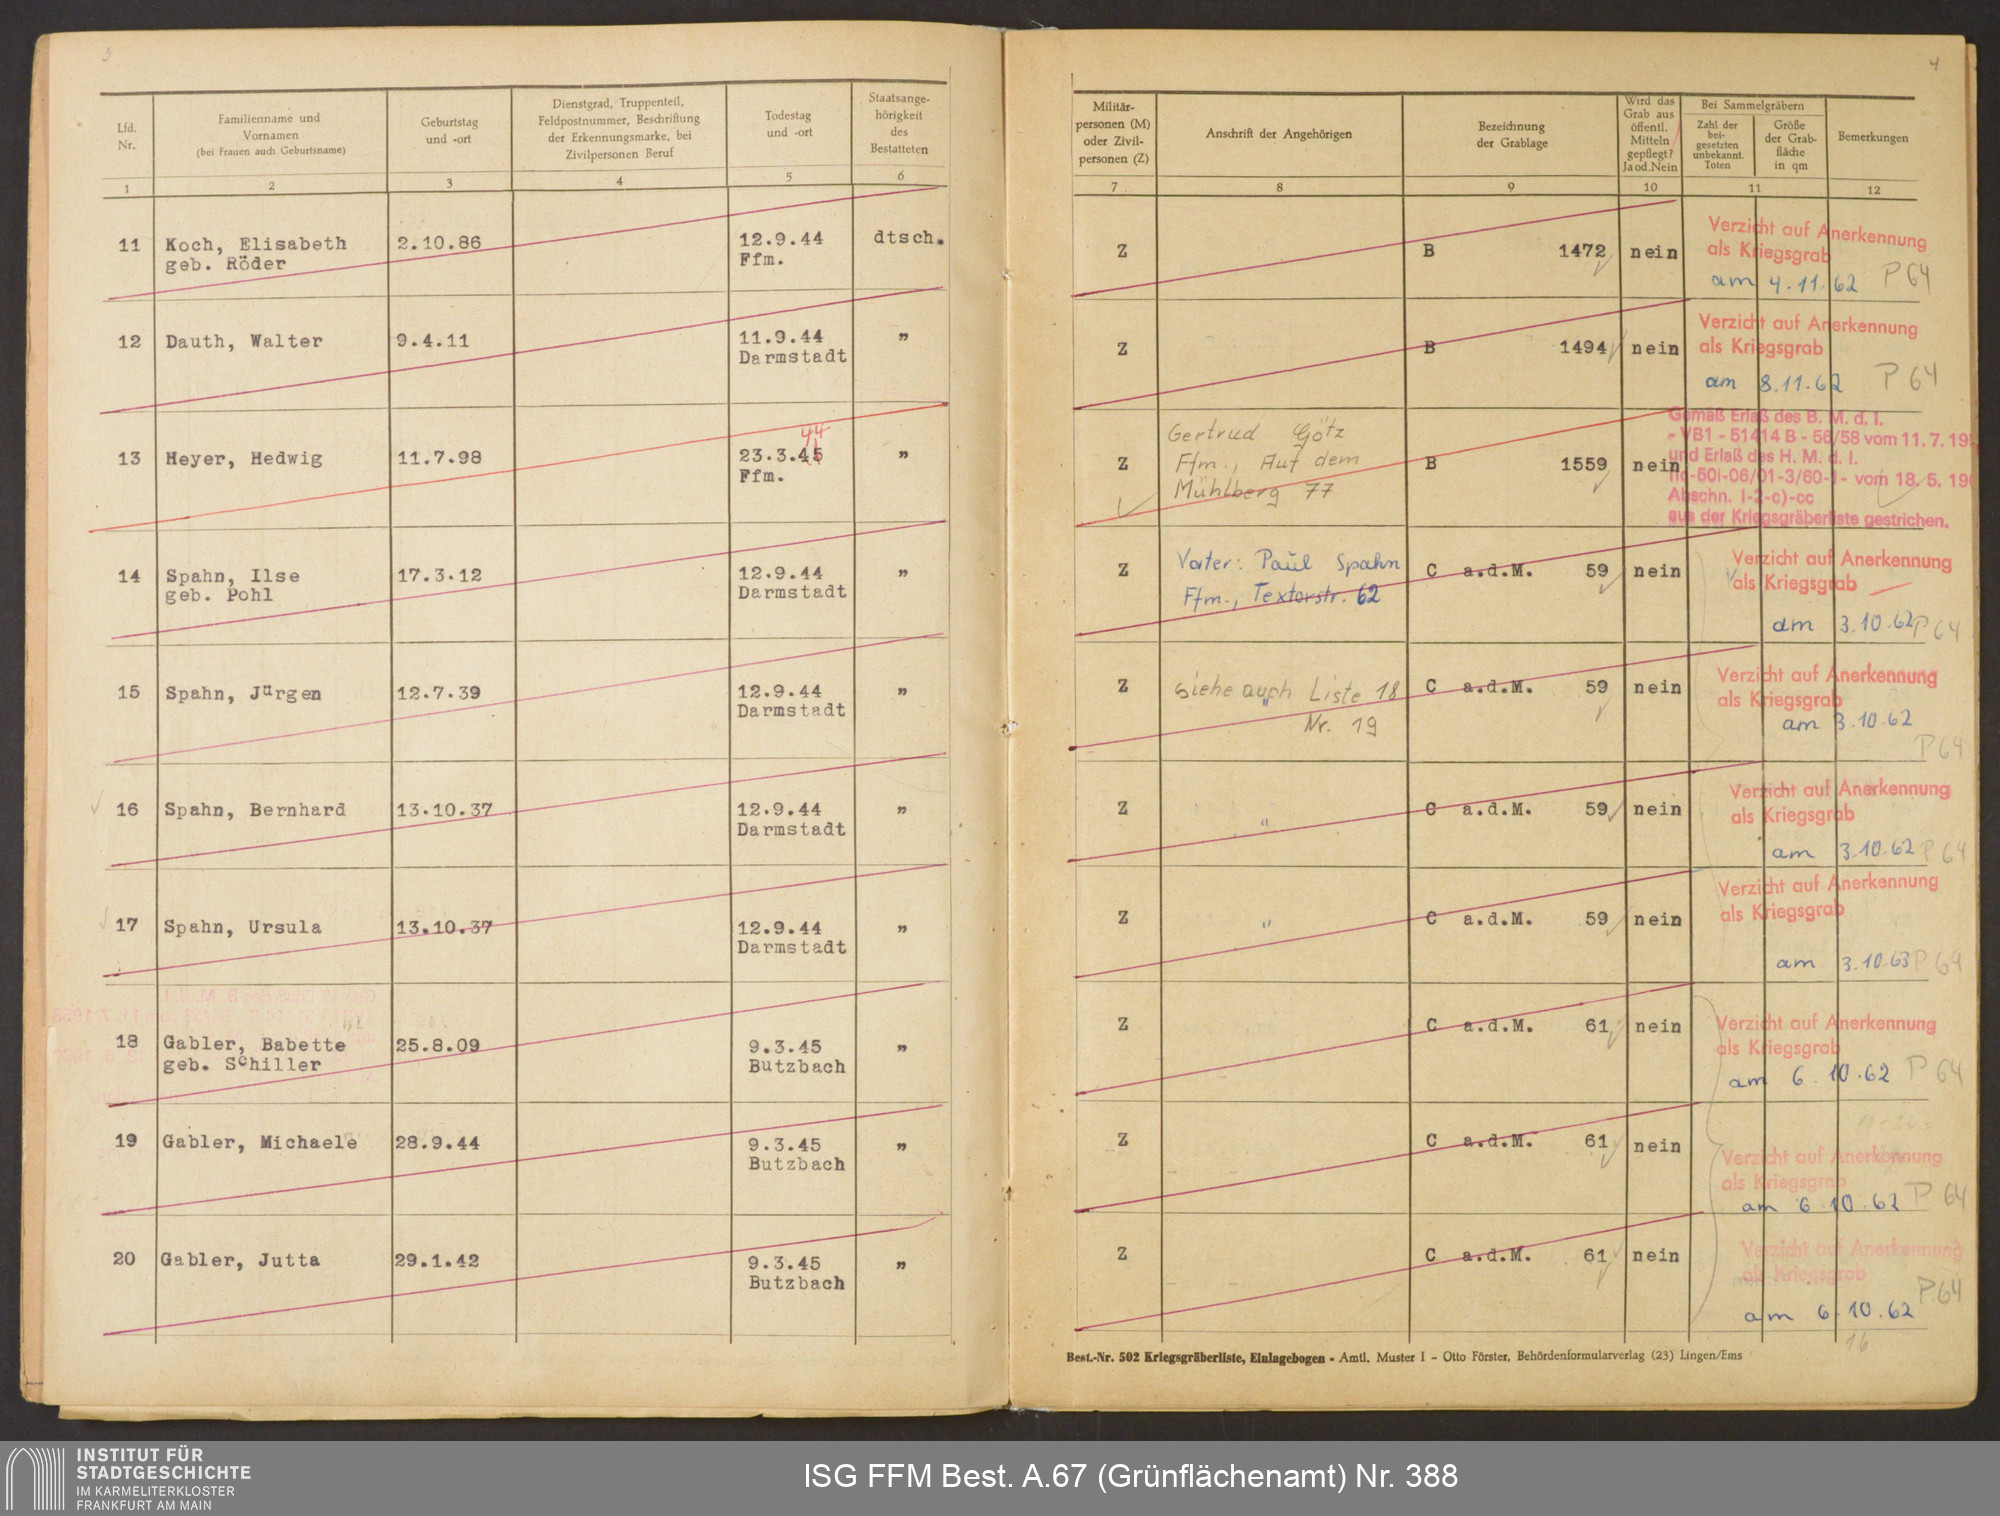 3
Lfd. Nr.
Familienname und Vornamen (bei Frauen auch Geburtsname)
Geburtstag und -ort
Dienstgrad, Truppenteil, Feldpostnummer, Beschriftung der Erkennungsmarke, bei Zivilpersonen Beruf
Todestag und -ort
Staatsange-hörigkeit des Bestatteten
1 2 3 4 5 6
11 Koch, Elisabeth 2.10.86 12.9.44 dtsch.
geb. Röder Ffm.
12 Dauth, Walter 9.4.11 11.9.44 "
Darmstadt
44
13 Heyer, Hedwig 11.7.98 23.3.45 "
Ffm.
14 Spahn, Ilse 17.3.12 12.9.44 "
geb. Pohl Darmstadt
15 Spahn, Jürgen 12.7.39 12.9.44 "
Darmstadt
16 Spahn, Bernhard 13.10.37 12.9.44 "
Darmstadt
17 Spahn, Ursula 13.10.37 12.9.44 "
Darmstadt
18 Gabler, Babette 25.8.09 9.3.45 "
geb. Schiller Butzbach
19 Gabler, Michaele 28.9.44 9.3.45 "
Butzbach
20 Gabler, Jutta 29.1.42 9.3.45 "
Butzbach
4
Militär-personen (M) oder Zivil-personen (Z)
Anschrift der Angehörigen
Bezeichnung der Grablage
Wird das Grab aus öffentl. Mitteln gepflegt? Ja od. Nein
Bei Sammelgräbern
Zahl der bei-gesetzten unbekannt. Toten
Größe der Grab-fläche in qm
Bemerkungen
7 8 9 10 11 12
Verzicht auf Anerkennung
Z B 1472 nein als Kriegsgrab
am 4.11.62 P 64
Verzicht auf Anerkennung
Z B 1494 nein als Kriegsgrab
am 8.11.62 P 64
Gemäß Erlaß des B. M. d. I.
Gertrud Götz - VB1 - 51414 B - 56/58 vom 11. 7. 19
Z Ffm., Auf dem B 1559 nein und Erlaß des H. M. d. I.
Mühlberg 77 -60i-06/01-3/60-I- vom 18. 5. 19
Abschn. I-2-c)-cc
aus der Kriegsgräberliste gestrichen.
Z Vater: Paul Spahn C a.d.M. 59 nein Verzicht auf Anerkennung
Ffm., Textorstr. 62 als Kriegsgrab
am 3.10.62 P 64
Z siehe auch Liste 18 C a.d.M. 59 nein Verzicht auf Anerkennung
Nr. 19 als Kriegsgrab
am 3.10.62
P 64
Z " C a.d.M. 59 nein Verzicht auf Anerkennung
als Kriegsgrab
am 3.10.62 P 64
Z " C a.d.M. 59 nein Verzicht auf Anerkennung
als Kriegsgrab
am 3.10.63 P 64
Z C a.d.M. 61 nein Verzicht auf Anerkennung
als Kriegsgrab
am 6.10.62 P 64
Z C a.d.M. 61 nein Verzicht auf Anerkennung
als Kriegsgrab
am 6.10.62 P 64
Z C a.d.M. 61 nein Verzicht auf Anerkennung
als Kriegsgrab
am 6.10.62 P 64
16
Best.-Nr. 502 Kriegsgräberliste, Einlagebogen - Amtl. Muster I - Otto Förster, Behördenformularverlag (23) Lingen/Ems
INSTITUT FÜR
STADTGESCHICHTE
IM KARMELITERKLOSTER
FRANKFURT AM MAIN
ISG FFM Best. A.67 (Grünflächenamt) Nr. 388